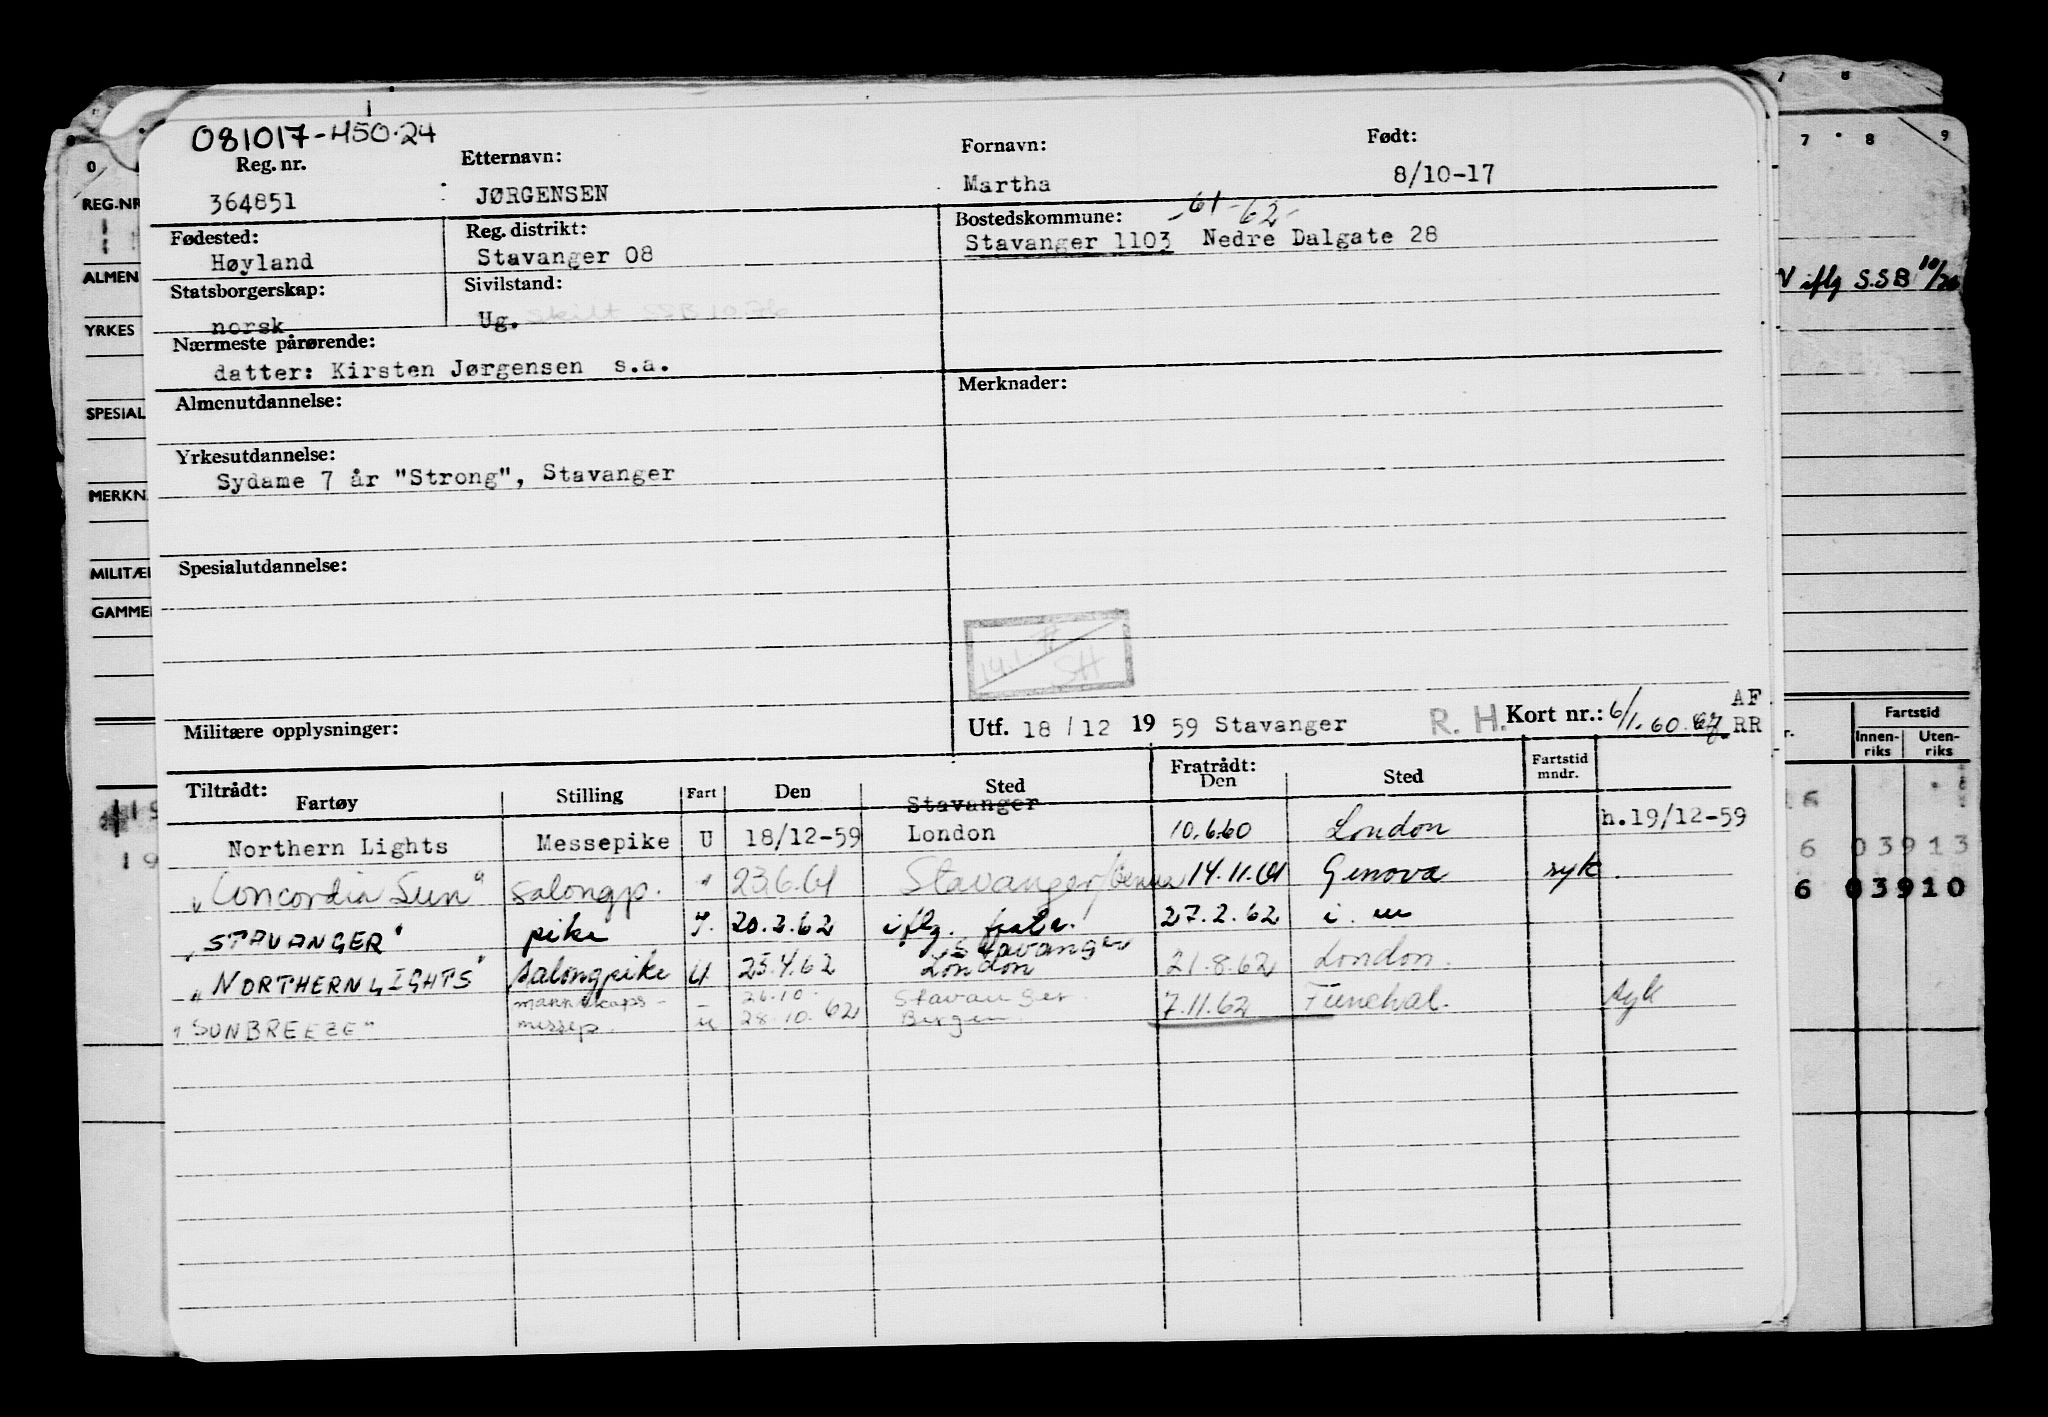 081017-450.24
Reg. nr. Etternavn: Fornavn: Født:
364851 JØRGENSEN Martha 8/10-17
Fødested: Reg. distrikt: Bostedskommune: -61-62-
Høyland Stavanger 08 Stavanger 1103 Nedre Dalgate 28
Statsborgerskap: Sivilstand:
norsk Ug. skilt SSB 10.76
Nærmeste pårørende:
datter: Kirsten Jørgensen s.a.
Almenutdannelse: Merknader:
Yrkesutdannelse:
Sydame 7 år "Strong", Stavanger
Spesialutdannelse:
SH
Militære opplysninger: Utf. 18/12 1959 Stavanger R. H. Kort nr.: 6/1.60 AF RR
Tiltrådt: Fratrådt:
Fartøy Stilling Fart Den Sted Den Sted Fartstid mndr.
Stavanger
Northern Lights Messepike U 18/12-59 London 10.6.60 London h.19/12-59
"Concordia Sun" salongp. " 23.6.61 Stavanger/Genua 14.11.61 Genova syk
"STAVANGER" pike 20.2.62 iflg. fratr. 27.2.62 i. m
Stavanger
"NORTHERN LIGHTS" salongpike U 25.4.62 London 21.8.62 London.
mannskaps- - 26.10. Stavanger.
"SUNBREEZE" messep. u 28.10.62 Bergen. 7.11.62 Funchal. syk
0 7 8 9
REG.NR
ALMEN V iflg S.S.B 10/76
YRKES
SPESIAL
MERKN.
MILITÆR
GAMMEL
Fartstid
Innenriks Utenriks
6 03913
6 03910